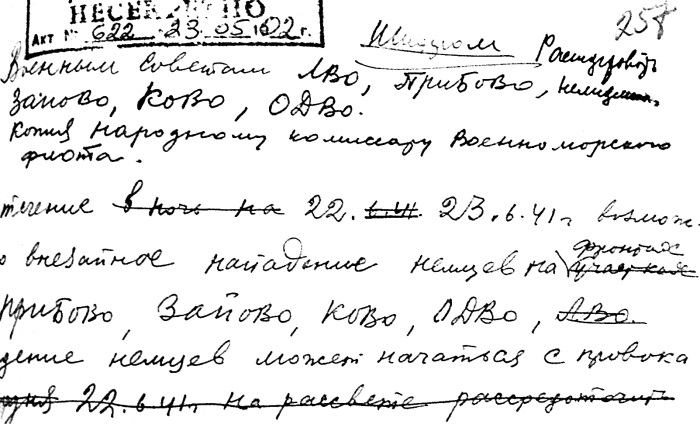 НЕСЕКРЕТНО
258
Акт № 622 23 05 1602 г.
Шифром
Расшифровать
Военным Советам ЛВО, ПрибОВО, немедлен.
ЗапОВО, КОВО, ОДВО.
Копия Народному комиссару Военно морского
флота.
течение в ночь на 22. 6.41. 23.6.41 г. возмож-
о внезапное нападение немцев на фронтах
участках
ПрибОВО, ЗапОВО, КОВО, ОДВО, ЛВО.
дение немцев может начаться с провока
22.6.41 г. на рассвете рассредоточить